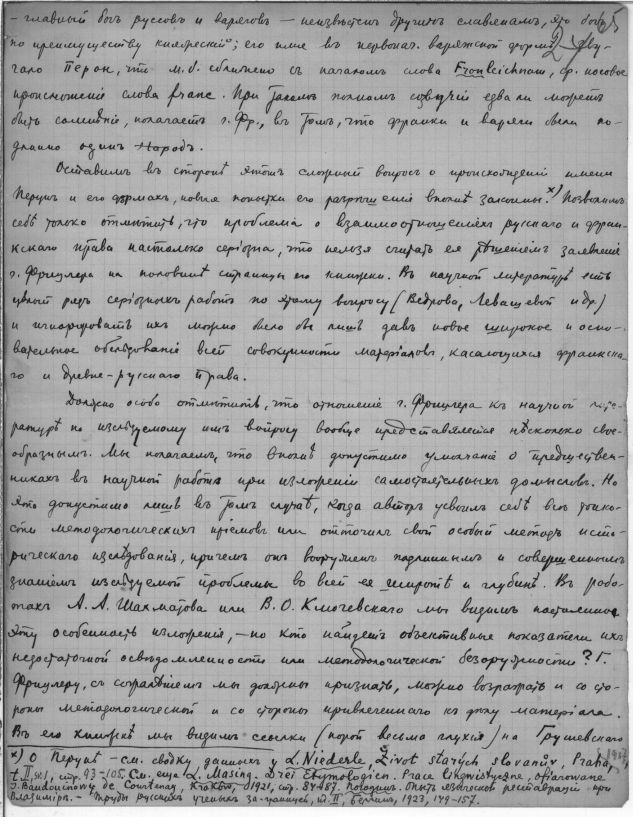 – главный богъ руссовъ и варяговъ – неизвѣстенъ другимъ славянамъ, это богъ
по преимуществу княжескій; его имя въ первонач. варяжской формѣ
Перонъ, что м.б. сближено съ началомъ слова Fronleichnam, ср. носовое
происхожденіе слова franc. При такомъ полномъ созвучіи едва ли можетъ
быть сомнѣніе, полагаетъ г. Фр., въ томъ, что франки и варяги были по-
длинно одинъ народъ.
Оставимъ въ сторонѣ этотъ сложный вопросъ о происхожденіи имени
Перунъ и его формахъ, новыя попытки его разрѣшенія вполнѣ законны. x) Позволимъ
себѣ только отмѣтить, что проблема о взаимоотношеніяхъ русскаго и фран-
кскаго права настолько серіозна, что нельзя считать ее рѣшеніемъ заявленіе
г. Фрицлера на половинѣ страницы его книжки. Въ научной литературѣ есть
цѣлый рядъ серіозныхъ работъ по этому вопросу (Ведрова, Левашевой и др.)
и игнорировать ихъ можно было бы лишь давъ новое широкое и осно-
вательное обслѣдованіе всей совокупности матеріаловъ, касающихся франкска-
го и древне-русскаго права.
Должно особо отмѣтить, что отношеніе г. Фрицлера къ научной лите-
ратурѣ по изслѣдуемому имъ вопросу вообще представляется нѣсколько свое-
образнымъ. Мы полагаемъ, что вполнѣ допустимо умолчаніе о предшествен-
никахъ въ научной работѣ при изложеніи самостоятельныхъ домысловъ. Но
это допустимо лишь въ томъ случаѣ, когда авторъ усвоилъ себѣ всѣ тонко-
сти методологическихъ пріемовъ или отточилъ свой особый методъ исто-
рическаго изслѣдованія, причемъ онъ вооруженъ подлиннымъ и совершеннымъ
знаніемъ изслѣдуемой проблемы во всей ея широтѣ и глубинѣ. Въ рабо-
тахъ А. А. Шахматова или В. О. Ключевскаго мы видимъ постоянно
эту особенность изложенія, – но кто найдетъ объективные показатели ихъ
недостаточной освѣдомленности или методологической безоружности? Г.
Фрицлеру, съ сожалѣніемъ мы должны признать, можно возражать и со сто-
роны методологической и со стороны привлеченнаго къ дѣлу матеріала.
Въ его книжкѣ мы видимъ ссылки (порой весьма глухія) на Грушевскаго
x) О Перунѣ – см. сводку данныхъ у L. Niederle, Život starých slovanův, Praha,
t. II, sv. 1, стр. 93-105. См. еще L. Masing. Drei Etymologien. Prace lingwistyczne, ofiarowane
J. Baudouinowi de Courtenay, Kraków, 1921, стр. Погодинъ. Опытъ языческой реставраціи при
Владимірѣ. – Труды русскихъ ученыхъ за-границей, т. II, Берлинъ, 1923, 149-157.